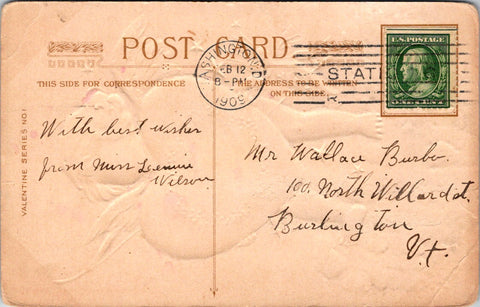 POST CARD
THIS SIDE FOR CORRESPONDENCE
ADDRESS TO BE WRITTEN
ON THIS SIDE.
VALENTINE SERIES NO 1
WASHINGTON, D.
FEB 12
8-PM
1909
STATI
U.S. POSTAGE
ONE CENT
With best wishes
from Miss Jennie
Wilson
Mr Wallace Burbo.
100. North Willard st.
Burlington
Vt.